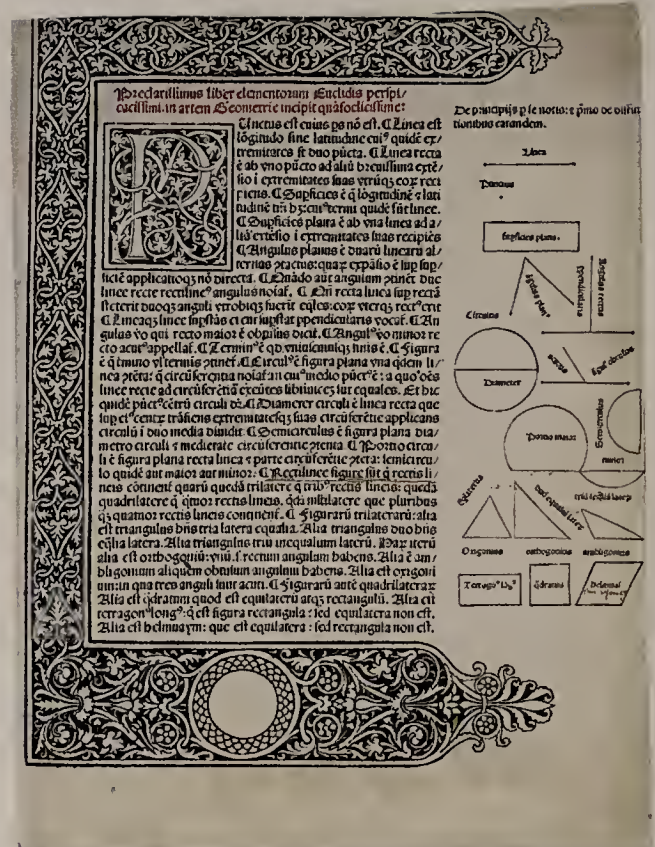 Preclarissimus liber elementorum Euclidis perspi/
cacissimi: in artem Geometrie incipit quãfoelicissime:
P
Unctus est cuius ps nõ est. ¶ Linea est
lõgitudo sine latitudine cui⁹ quidẽ ex/
tremitates st duo pũcta. ¶ Linea recta
ẽ ab vno pũcto ad aliũ breuissima extẽ/
sio i extremitates suas vtrũqȝ eoꝝ reci
piens. ¶ Supficies ẽ q̃ lõgitudinẽ ⁊ lati
tudinẽ tm̃ hȝ: cui⁹ termi quidẽ sũt linee.
¶ Supficies plana ẽ ab vna linea ad a/
liã extẽsio i extremitates suas recipiẽs
¶ Angulus planus ẽ duarũ linearũ al/
ternus ꝯtactus: quaꝝ expãsio ẽ sup sup/
ficiẽ applicatioqȝ nõ directa. ¶ Quãdo aut angulum ꝯtinẽt due
linee recte rectiline⁹ angulus noiaẗ. ¶ Qñ recta linea sup rectã
steterit duoqȝ anguli vtrobiqȝ fuerit eq̃les: eoꝝ vterqȝ rect⁹ erit
¶ Lineaqȝ linee supstãs ei cui supstat ppendicularis vocaẗ. ¶ An
gulus vo qui recto maior ẽ obtusus diciẗ. ¶ Angul⁹ vo minor re
cto acut⁹ appellaẗ. ¶ Termin⁹ ẽ qd vniuscuiusqȝ finis ẽ. ¶ Figura
ẽ q̃ tmino vl terminis ꝯtineẗ. ¶ Circul⁹ ẽ figura plana vna qdem li/
nea ꝯtẽta: q̃ circũferentia noiaẗ: in cui⁹ medio pũct⁹ ẽ: a quo oẽs
linee recte ad circũferẽtiã exeũtes sibiinuicẽ sut equales. Et hic
quidẽ pũct⁹ cẽtrũ circuli dȝ. ¶ Diameter circuli ẽ linea recta que
sup ei⁹ centȝ trãsiens extremitatesqȝ suas circũferẽtie applicans
circulũ i duo media diuidit. ¶ Semicirculus ẽ figura plana dia/
metro circuli ⁊ medietate circũferentie ꝯtenta. ¶ Portio circu/
li ẽ figura plana recta linea ⁊ parte circũferẽtie ꝯtẽta: semicircu/
lo quidẽ aut maior aut minor. ¶ Rectilinee figure sũt q̃ rectis li/
neis cõtinent quarũ quedã trilatere q̃ trib⁹ rectis lineis: quedã
quadrilatere q̃ q̃tuor rectis lineis. q̃dã mltilatere que pluribus
qȝ quatuor rectis lineis continent. ¶ Figurarũ trilaterarũ: alia
est triangulus hñs tria latera equalia. Alia triangulus duo hñs
eq̃lia latera. Alia triangulus triũ inequalium laterũ. Haꝝ iterũ
alia est orthogoniũ: vnũ .s. rectum angulum habens. Alia ẽ am/
bligonium aliquem obtusum angulum habens. Alia est oxigoni
um: in qua tres anguli sunt acuti. ¶ Figurarũ autẽ quadrilateraꝝ
Alia est q̃dratum quod est equilaterũ atqȝ rectangulũ. Alia est
tetragon⁹ long⁹: q̃ est figura rectangula: sed equilatera non est.
Alia est helmuaym: que est equilatera: sed rectangula non est.
De principijs p se notis: ⁊ pmo de diffini
tionibus earandem.
Linea
Punctus
Supficies plana.
Circulus
Diameter
Portio maior
minor
Oxigonius
orthogonius
ambligonius
Tetragon⁹ lõg⁹
q̃dratus
Helmuaym